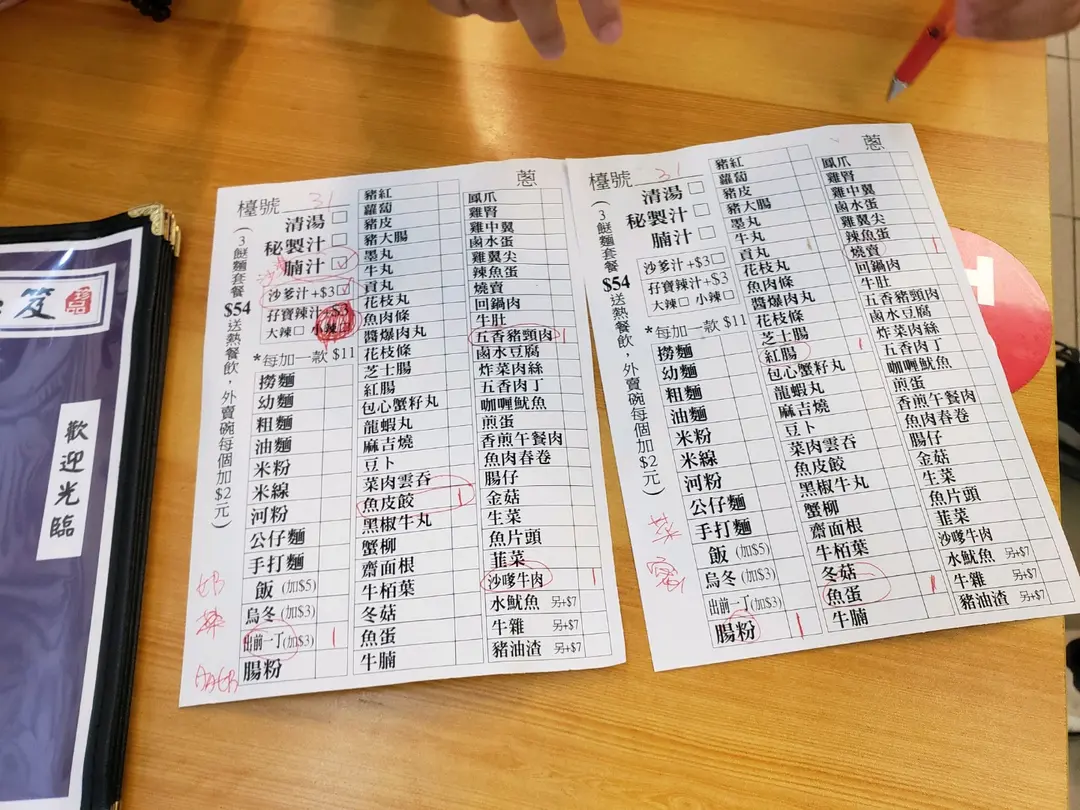 笈
歡迎光臨
蔥
檯號 31
(3餸麵套餐 $54 送熱餐飲，外賣碗每個加$2元)
清湯□
秘製汁□
腩汁☑
沙爹汁+$3☑
孖寶辣汁+$3
大辣□ 小辣□
*每加一款 $11
撈麵
幼麵
粗麵
油麵
米粉
米線
河粉
公仔麵
手打麵
飯 (加$5)
烏冬 (加$3)
出前一丁(加$3) 1
腸粉
豬紅
蘿蔔
豬皮
豬大腸
墨丸
牛丸
貢丸
花枝丸
魚肉條
醬爆肉丸
花枝條
芝士腸
紅腸
包心蟹籽丸
龍蝦丸
麻吉燒
豆卜
菜肉雲吞
魚皮餃 1
黑椒牛丸
蟹柳
齋面根
牛栢葉
冬菇
魚蛋
牛腩
鳳爪
雞腎
雞中翼
鹵水蛋
雞翼尖
辣魚蛋
燒賣
回鍋肉
牛肚
五香豬頸肉 1
鹵水豆腐
炸菜肉絲
五香肉丁
咖喱魷魚
煎蛋
香煎午餐肉
魚肉春卷
腸仔
金菇
生菜
魚片頭
韮菜
沙嗲牛肉 1
水魷魚 另+$7
牛雜 另+$7
豬油渣 另+$7
蔥
檯號 31
(3餸麵套餐 $54 送熱餐飲，外賣碗每個加$2元)
清湯□
秘製汁□
腩汁□
沙爹汁+$3□
孖寶辣汁+$3
大辣□ 小辣□
*每加一款 $11
撈麵
幼麵
粗麵
油麵
米粉
米線
河粉
公仔麵
手打麵
飯 (加$5)
烏冬 (加$3)
出前一丁(加$3)
腸粉 1
豬紅
蘿蔔
豬皮
豬大腸
墨丸
牛丸
貢丸
花枝丸
魚肉條
醬爆肉丸
花枝條
芝士腸
紅腸 1
包心蟹籽丸
龍蝦丸
麻吉燒
豆卜
菜肉雲吞
魚皮餃
黑椒牛丸
蟹柳
齋面根
牛栢葉
冬菇
魚蛋 1
牛腩
鳳爪
雞腎
雞中翼
鹵水蛋
雞翼尖
辣魚蛋
燒賣 1
回鍋肉
牛肚
五香豬頸肉
鹵水豆腐
炸菜肉絲
五香肉丁
咖喱魷魚
煎蛋
香煎午餐肉
魚肉春卷
腸仔
金菇
生菜
魚片頭
韮菜
沙嗲牛肉
水魷魚 另+$7
牛雜 另+$7
豬油渣 另+$7
H